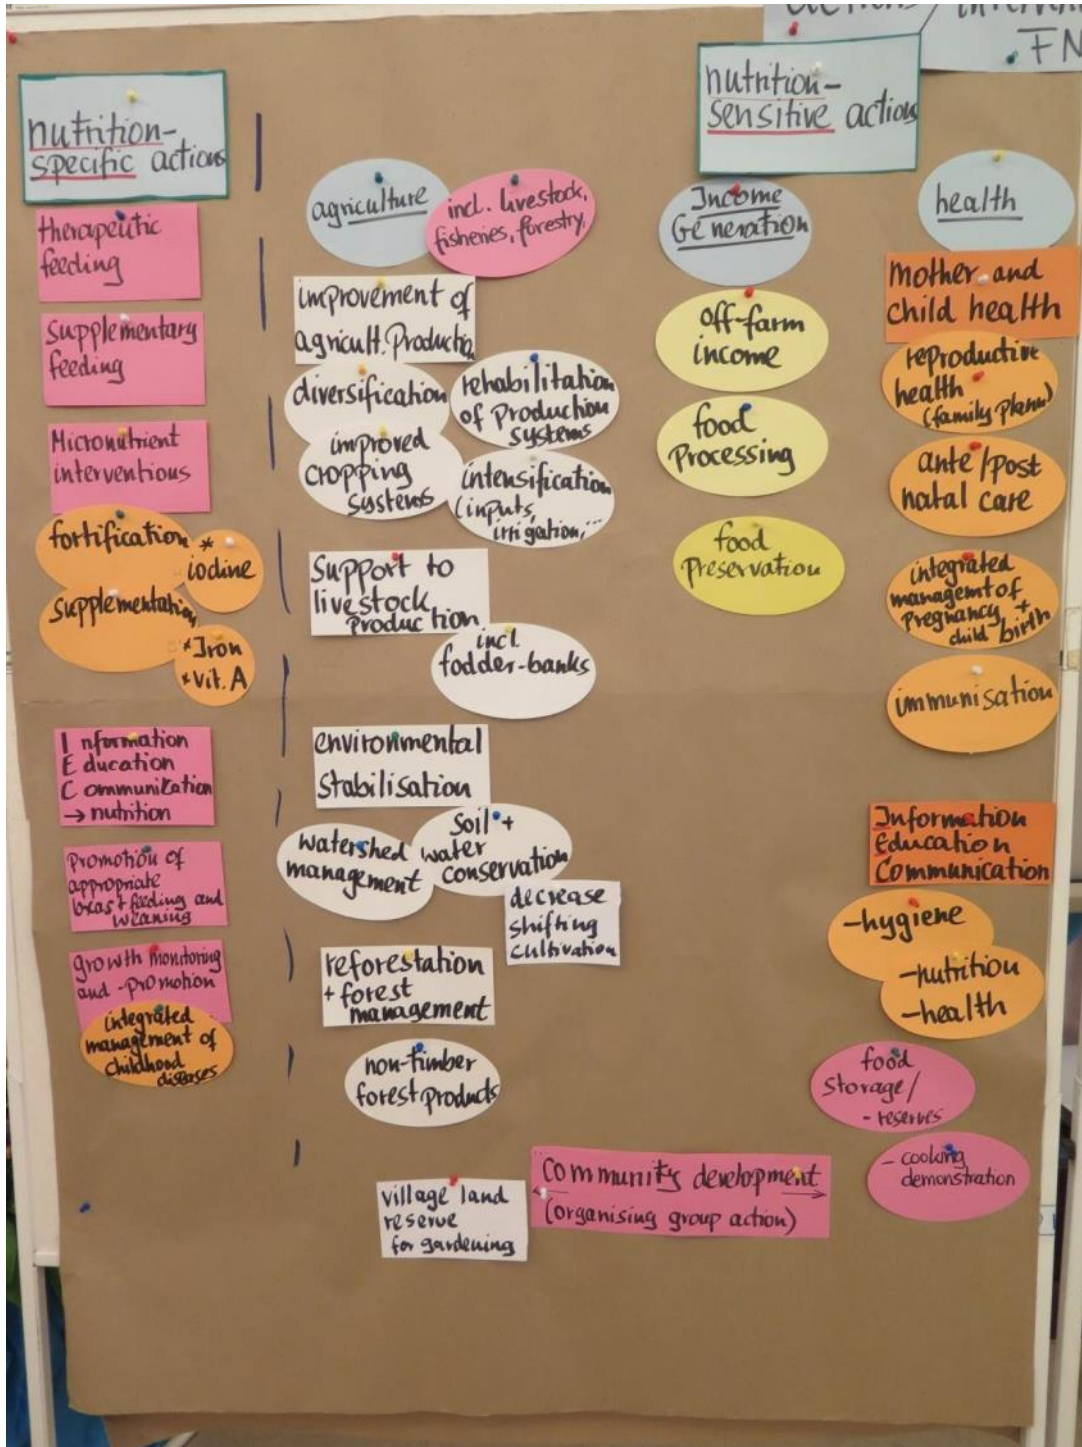 FN
nutrition-
specific actions
therapeutic
feeding
supplementary
feeding
Micronutrient
interventions
fortification
* iodine
supplementation
*Iron
*Vit. A
Information
Education
Communication
→ nutrition
Promotion of
appropriate
breast feeding and
weaning
growth monitoring
and -promotion
integrated
management of
childhood
diseases
nutrition-
sensitive actions
agriculture
incl. livestock,
fisheries, forestry,
improvement of
agricult. Productio
diversification
rehabilitation
of Production
systems
improved
cropping
systems
intensification
(inputs,
irrigation,...
Support to
livestock
Production
incl.
fodder-banks
environmental
stabilisation
watershed
management
Soil +
water
conservation
decrease
shifting
cultivation
reforestation
+ forest
management
non-timber
forest products
village land
reserve
for gardening
Community development
(organising group action)
Income
Generation
off-farm
income
food
Processing
food
Preservation
health
mother and
child health
reproductive
health
(family Plann)
ante/post
natal care
integrated
managemt of
pregnancy +
child birth
immunisation
Information
Education
Communication
-hygiene
-nutrition
-health
food
storage/
- reserves
- cooking
demonstration